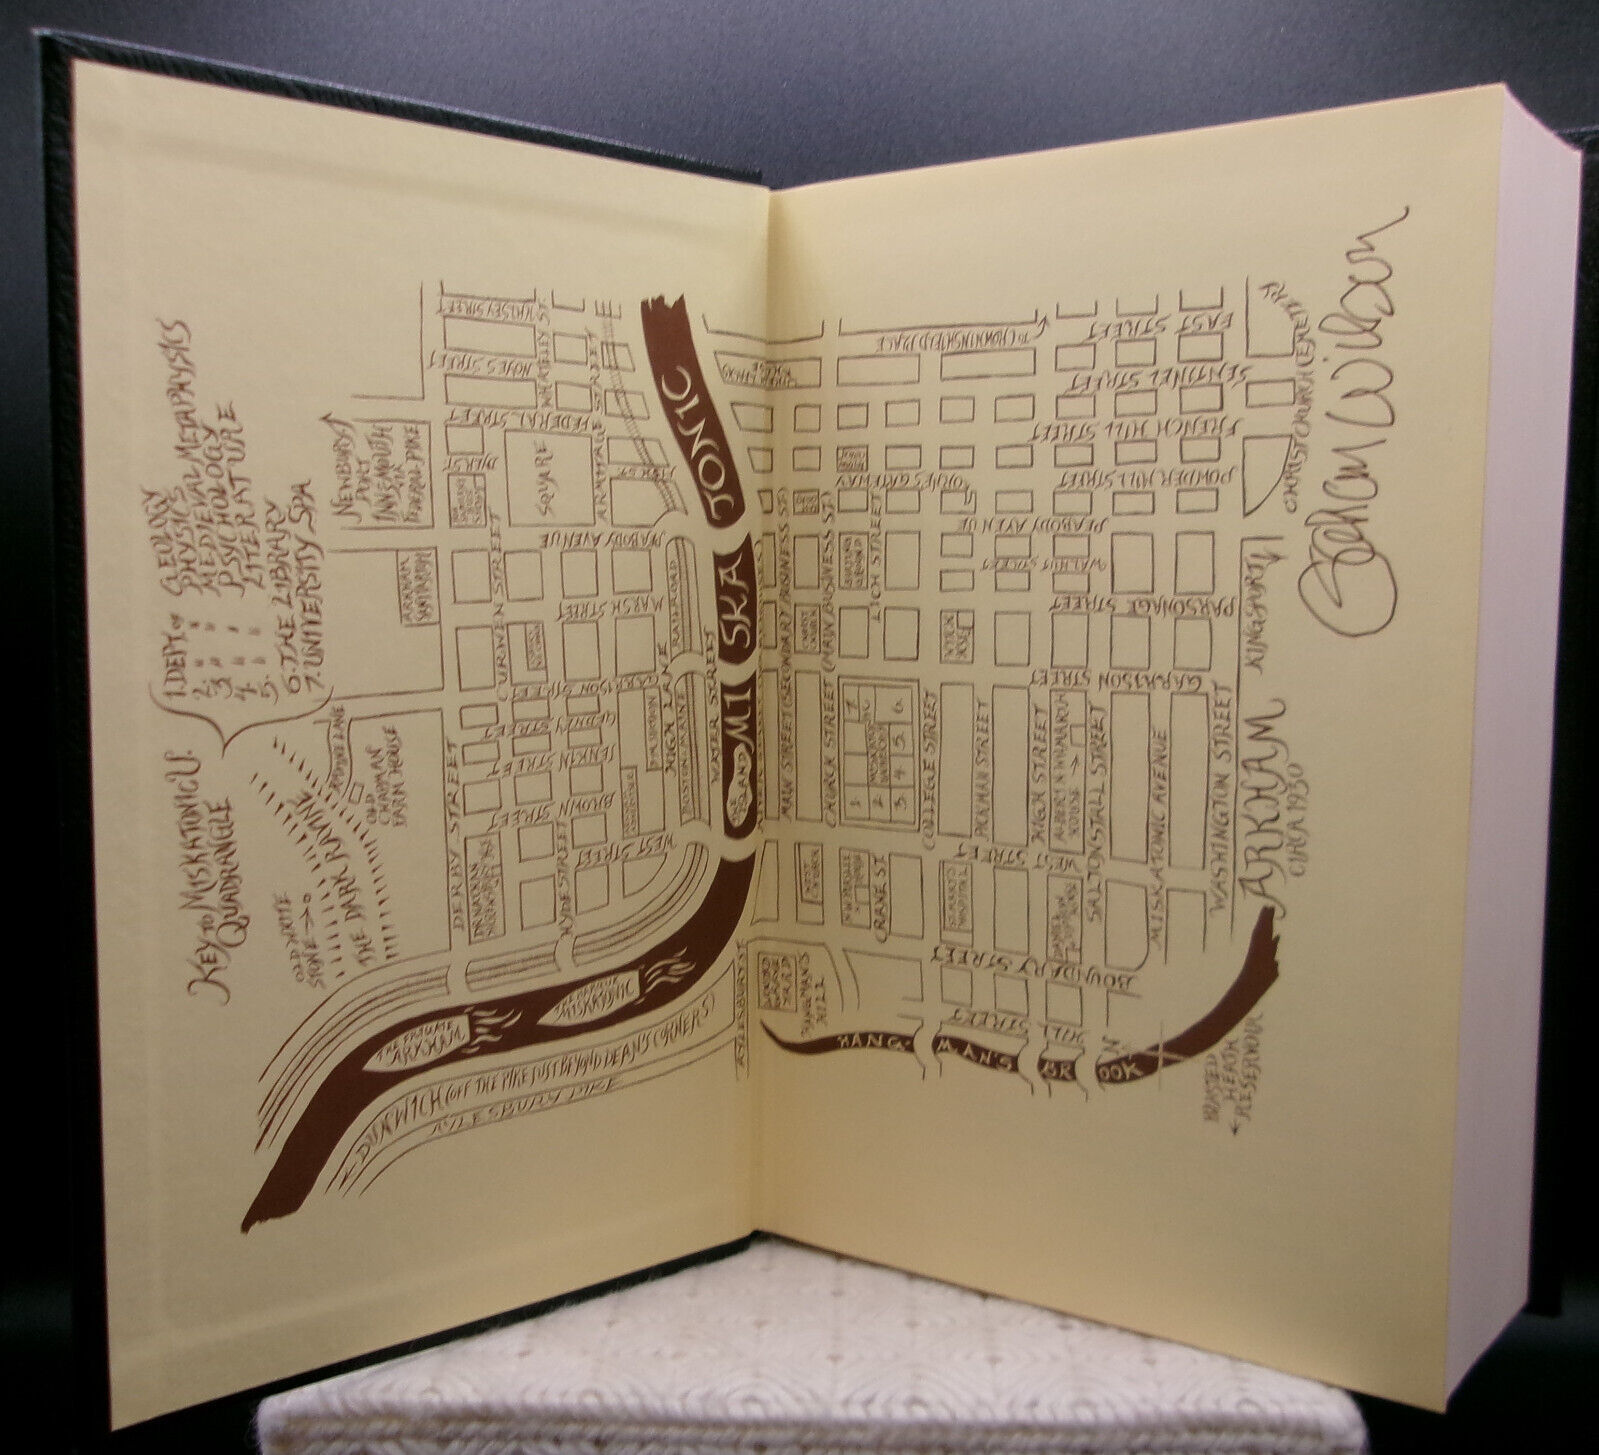 KEY TO MISKATONIC U.
QUADRANGLE
1. DEPT. of GEOLOGY
2. " " PHYSICS
3. " " MEDIEVAL METAPHYSICS
4. " " PSYCHOLOGY
5. " " LITERATURE
6. THE LIBRARY
7. UNIVERSITY SPA
OLD WHITE
STONE
THE DARK RAVINE
OLD
CHAPMAN
FARM HOUSE
NEWBURY
PORT
INNSMOUTH
VIA
ARKHAM
SANITARIUM
DERBY STREET
CURWEN STREET
HYDE STREET
WHATELEY ST.
ARMITAGE STREET
NOYES STREET
FEDERAL STREET
DYER ST.
SQUARE
FISH ST.
PEABODY AVENUE
MARSH STREET
GARRISON STREET
GEDNEY STREET
JENKIN STREET
BROWN STREET
WEST STREET
HIGH LANE
RAILROAD
BOSTON & MAINE
WATER STREET
MISKATONIC
THE ISLAND
THE PRIVATE
ARKHAM
MISKATONIC
DUNWICH (OFF THE PIKE JUST BEYOND DEAN'S CORNERS)
AYLESBURY PIKE
AYLESBURY ST.
MAIN STREET (SECONDARY BUSINESS ST.)
CHURCH STREET (MAIN BUSINESS ST.)
LICH STREET
COLLEGE STREET
CRANE ST.
PICKMAN STREET
HIGH STREET
SALTONSTALL STREET
MISKATONIC AVENUE
WASHINGTON STREET
TO CROWNINSHIELD PLACE
EAST STREET
SENTINEL STREET
FRENCH HILL STREET
POWDER MILL STREET
ORNES GATEWAY
PEABODY AVENUE
WALNUT STREET
PARSONAGE STREET
GARRISON STREET
WEST STREET
BOUNDARY STREET
HILL STREET
1. 2. 3. 4. 5. 6. 7.
MISKATONIC
ST. MARY'S
HOSPITAL
ALBERT N. WILMARTH
HOUSE
HANGMAN'S
HILL
HANGMAN'S BROOK
BLASTED
HEATH
RESERVOIR
CHRISTCHURCH CEMETERY
KINGSPORT
ARKHAM
CIRCA 1930
Gahan Wilson